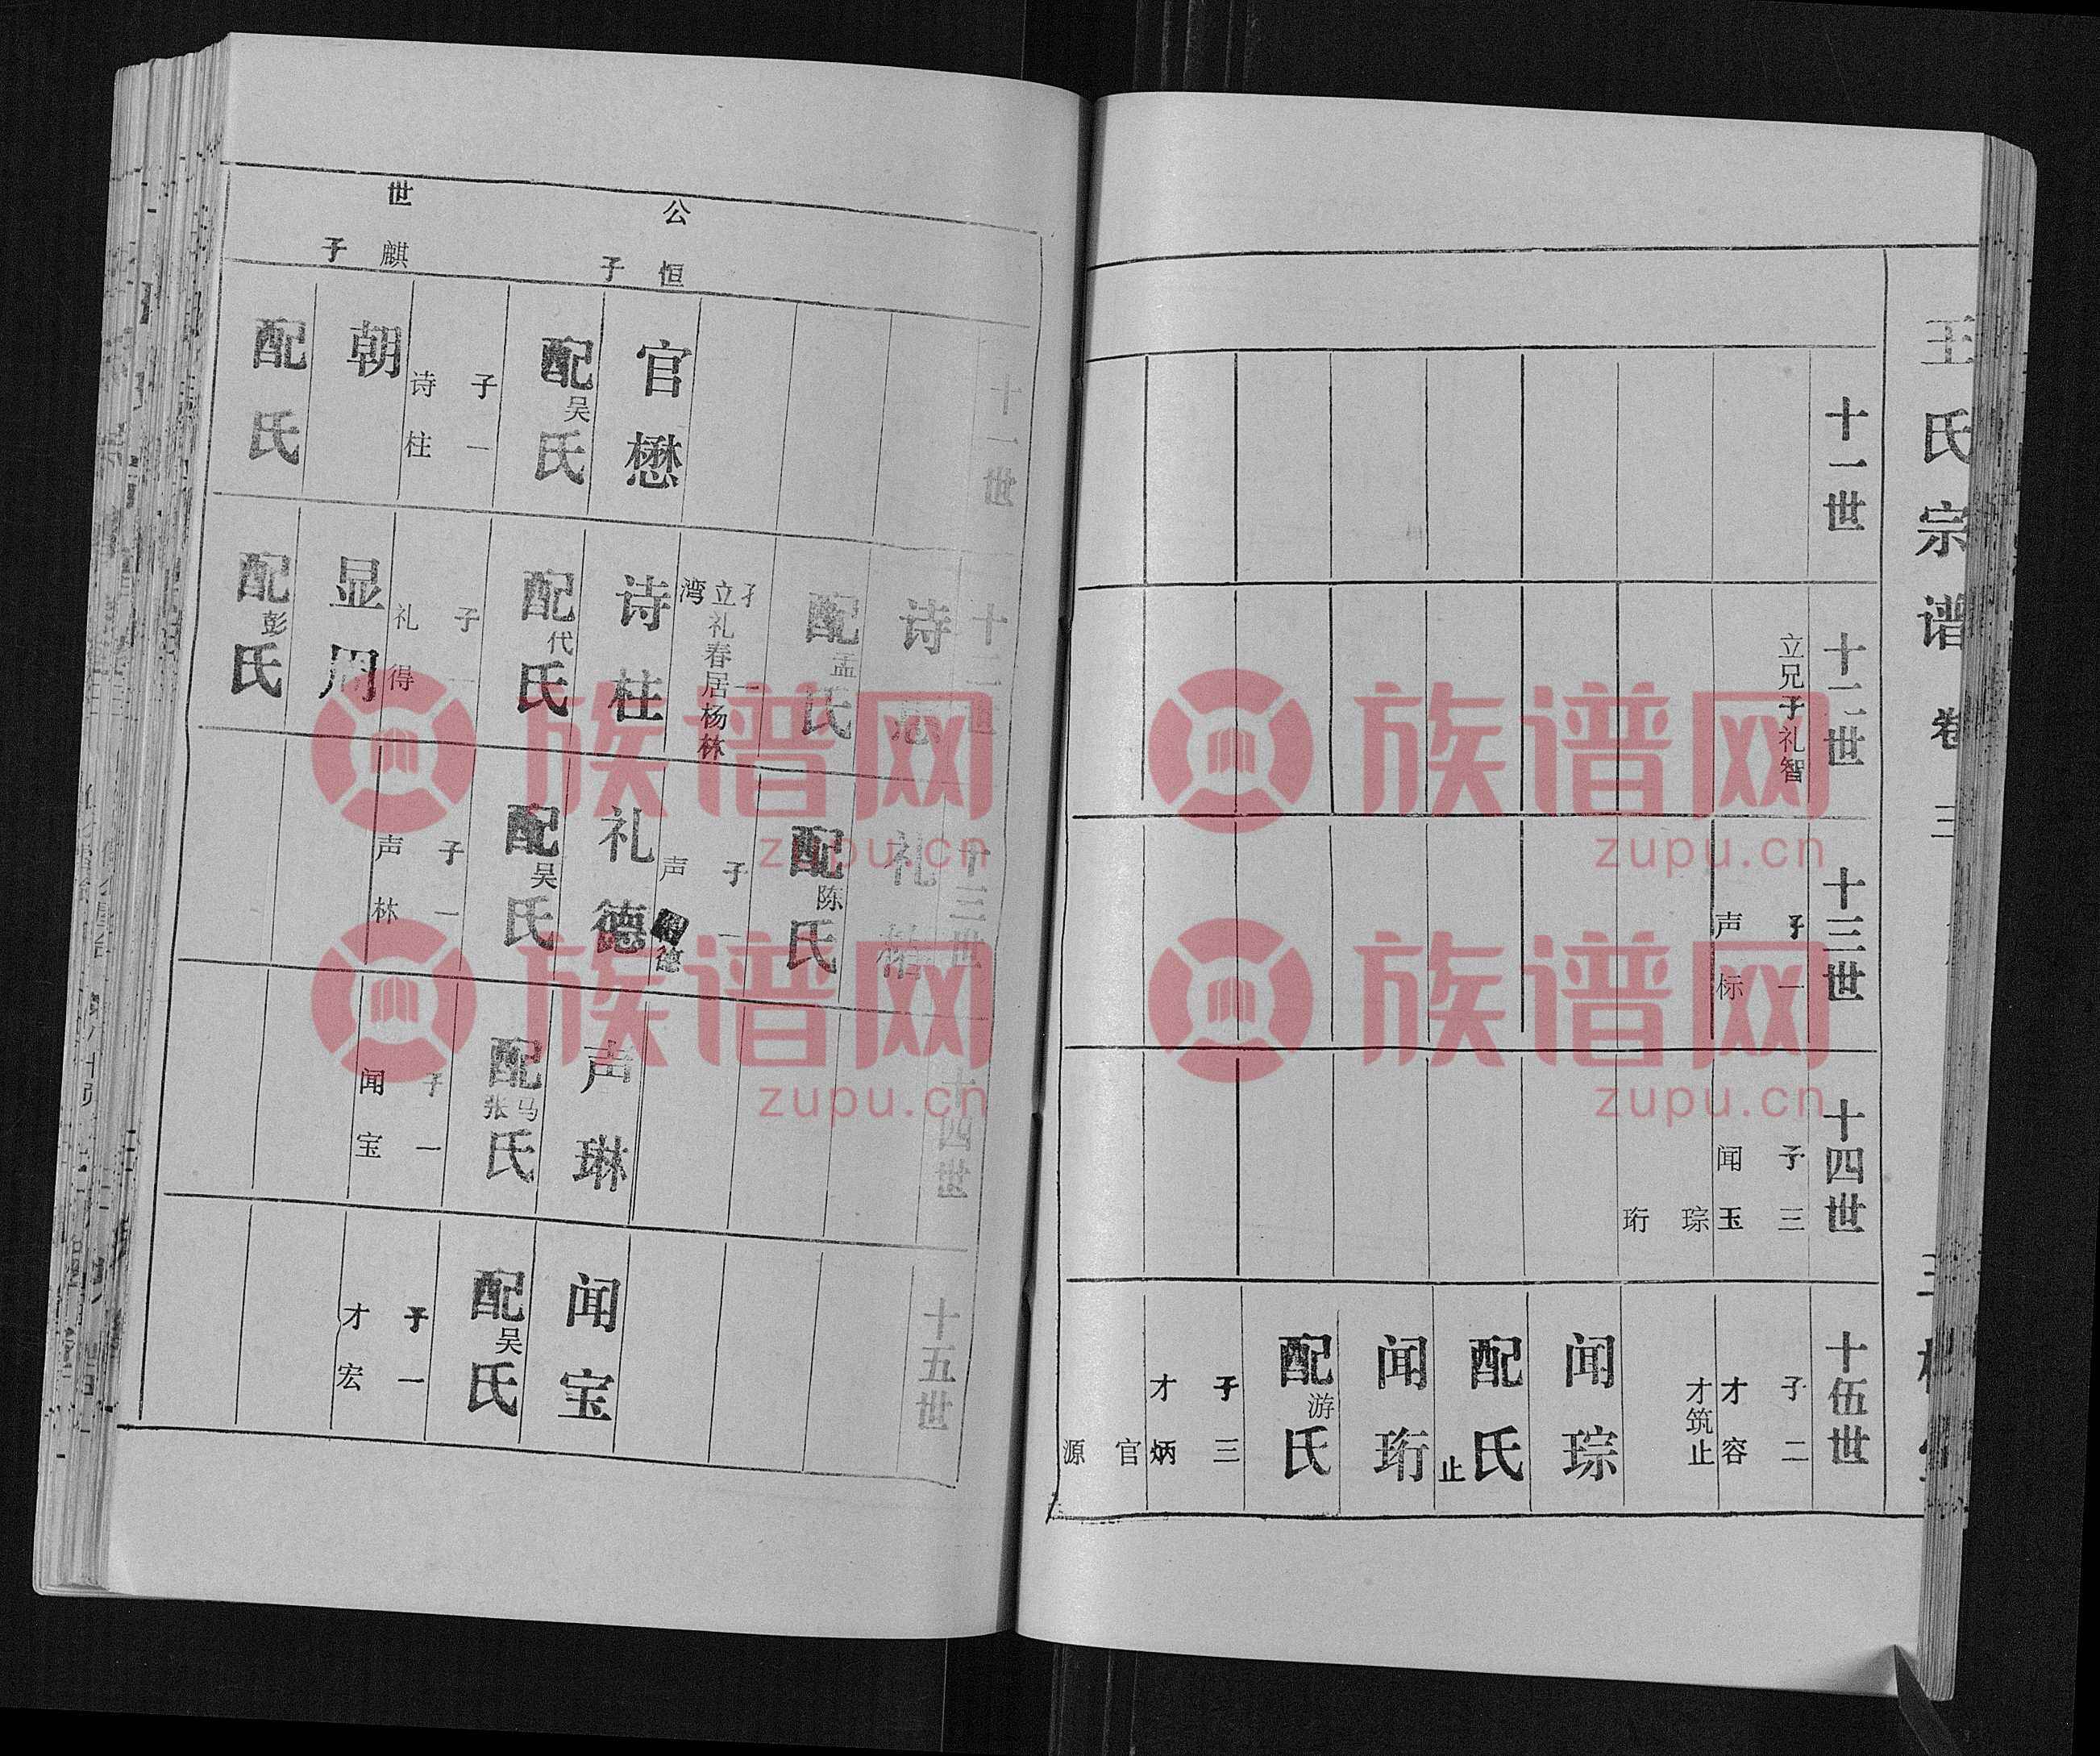 王氏宗谱 卷三
十一世
十二世
立兄子礼智
十三世
子一
声标
十四世
子三
闻玉
琮
珩
十伍世
子二
才容
才筑止
闻琮
配氏
止
闻珩
配游氏
子三
才炳
官
源
公恒子
世麒子
十一世
官懋
配吴氏
子一
诗柱
朝
配氏
十二世
诗
配孟氏
子一
立礼春居杨林
湾
诗柱
配代氏
子一
礼得
显周
配彭氏
十三世
礼
配陈氏
子一
声
德
礼德
配吴氏
子一
声林
十四世
声琳
配马张氏
子一
闻宝
十五世
闻宝
配吴氏
子一
才宏
族谱网
zupu.cn
族谱网
zupu.cn
族谱网
zupu.cn
族谱网
zupu.cn